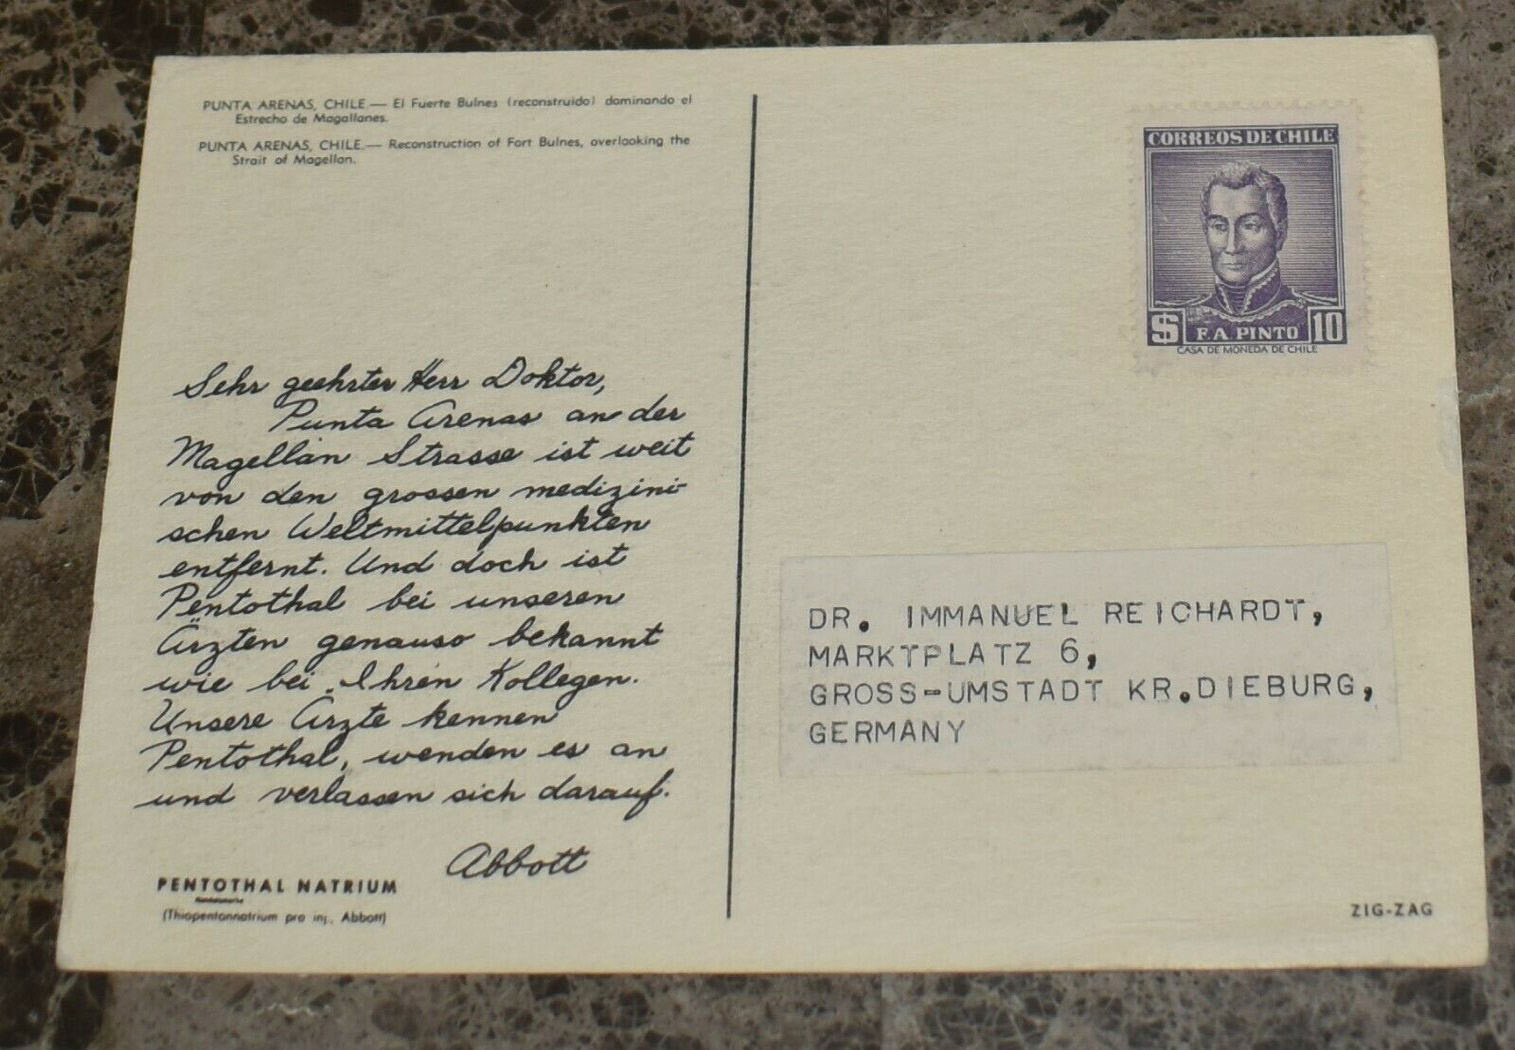 PUNTA ARENAS, CHILE.— El Fuerte Bulnes (reconstruido) dominando el
Estrecho de Magallanes.
PUNTA ARENAS, CHILE.— Reconstruction of Fort Bulnes, overlooking the
Strait of Magellan.
Sehr geehrter Herr Doktor,
Punta Arenas an der
Magellan Strasse ist weit
von den grossen medizini-
schen Weltmittelpunkten
entfernt. Und doch ist
Pentothal bei unseren
Ärzten genauso bekannt
wie bei Ihren Kollegen.
Unsere Ärzte kennen
Pentothal, wenden es an
und verlassen sich darauf.
Abbott
PENTOTHAL NATRIUM
(Thiopentonnatrium pro inj., Abbott)
CORREOS DE CHILE
$ F. A. PINTO 10
CASA DE MONEDA DE CHILE
DR. IMMANUEL REICHARDT,
MARKTPLATZ 6,
GROSS-UMSTADT KR.DIEBURG,
GERMANY
ZIG-ZAG